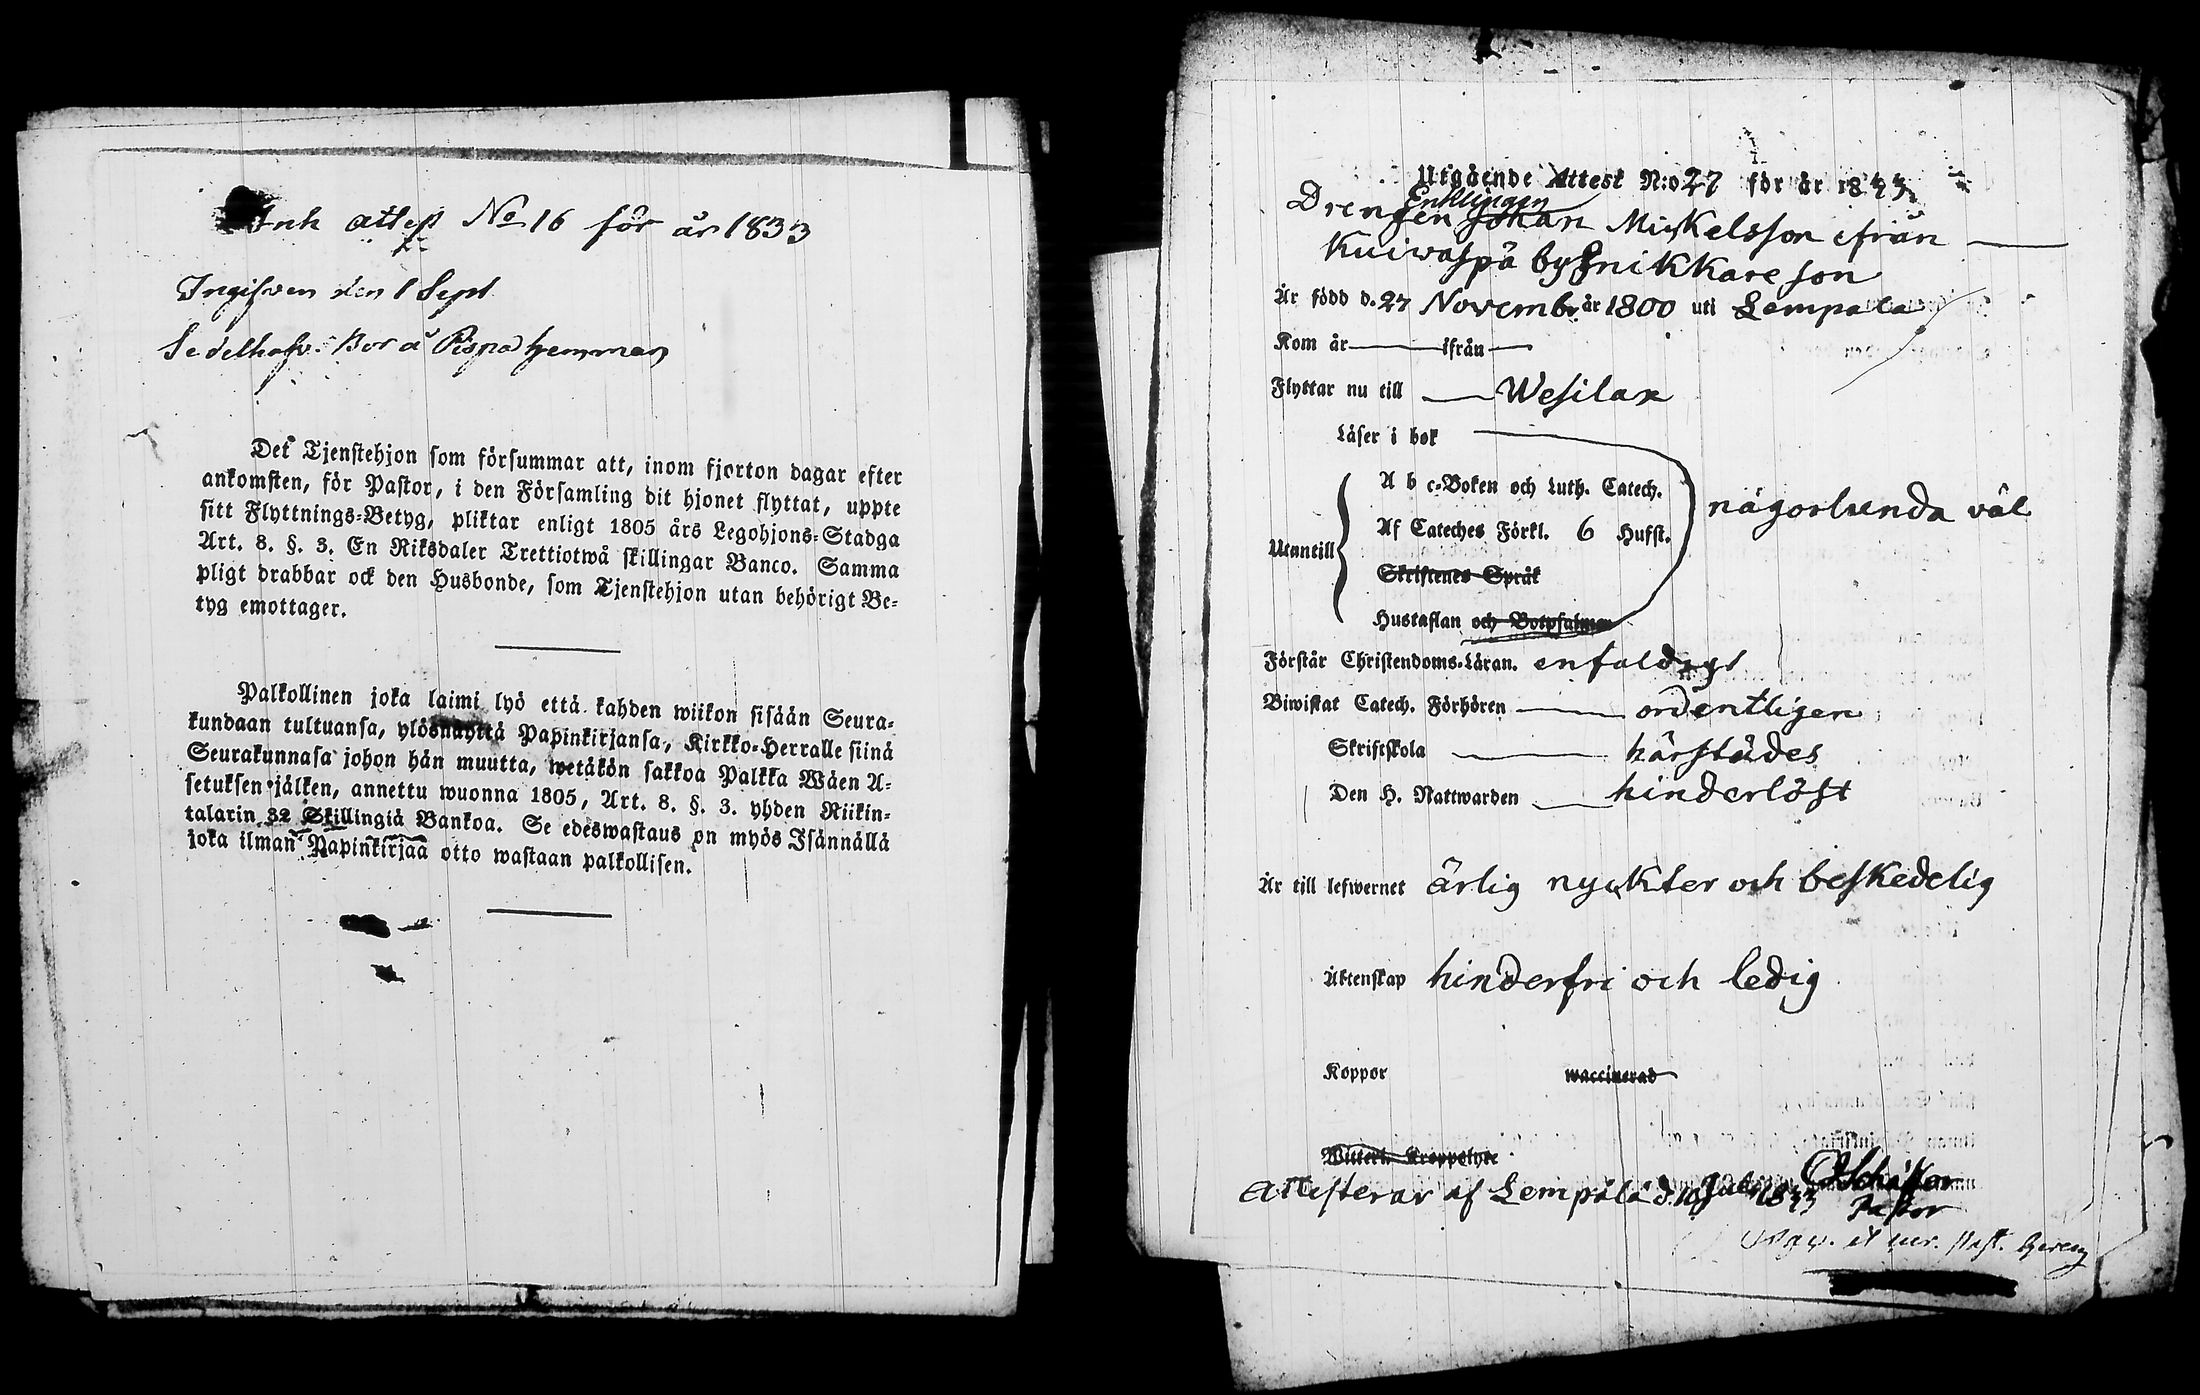 Ink attest No 16 för år 1833
Ingifven den 1 Sept
Sedelhafv. Bor å Pispa hemman
Det Tjenstehjon som försummar att, inom fjorton dagar efter
ankomsten, för Pastor, i den Församling dit hjonet flyttat, uppte
sitt Flyttnings-Betyg, pliktar enligt 1805 års Legohjons-Stadga
Art. 8. §. 3. En Riksdaler Trettiotwå skillingar Banco. Samma
pligt drabbar ock den Husbonde, som Tjenstehjon utan behörigt Be-
tyg emottager.
Palkollinen joka laimi lyö että kahden wiikon sisään Seura-
kundaan tultuansa, ylösnäyttä Papinkirjansa, Kirkko-Herralle siinä
Seurakunnasa johon hän muutta, wetäkön sakkoa Palkka Wäen A-
setuksen jälken, annettu wuonna 1805, Art. 8. §. 3. yhden Riikin-
talarin 32 Skillingiä Bankoa. Se edeswastaus on myös Isännällä
joka ilman Papinkirjaa otto wastaan palkollisen.
Utgående Attest N:o 27 för år 1833
Enklingen
Drengen Johan Mickelsson ifrån
Kuiwaspä by Snikkare son
År född d. 27 Novembr år 1800 uti Lempala
Kom år ifrån
Flyttar nu till Wesilax
Läser i bok
A b c-Boken och Luth. Catech.
någorlunda väl
Af Cateches Förkl. 6 Hufst.
Utantill
Skriftenes Språk
Hustaflan och Botpsalmen
Förstår Christendoms-Läran. enfaldigt
Biwistat Catech. Förhören ordentligen
Skriftskola härstädes
Den H. Nattwarden hinderlöst
Är till lefwernet ärlig nyckter och beskedelig
Äktenskap hinderfri och ledig
Koppor waccinerad
Witterl. Kroppslyte
Attesterar af Lempälä d. 10 Juli 1833
Pastor